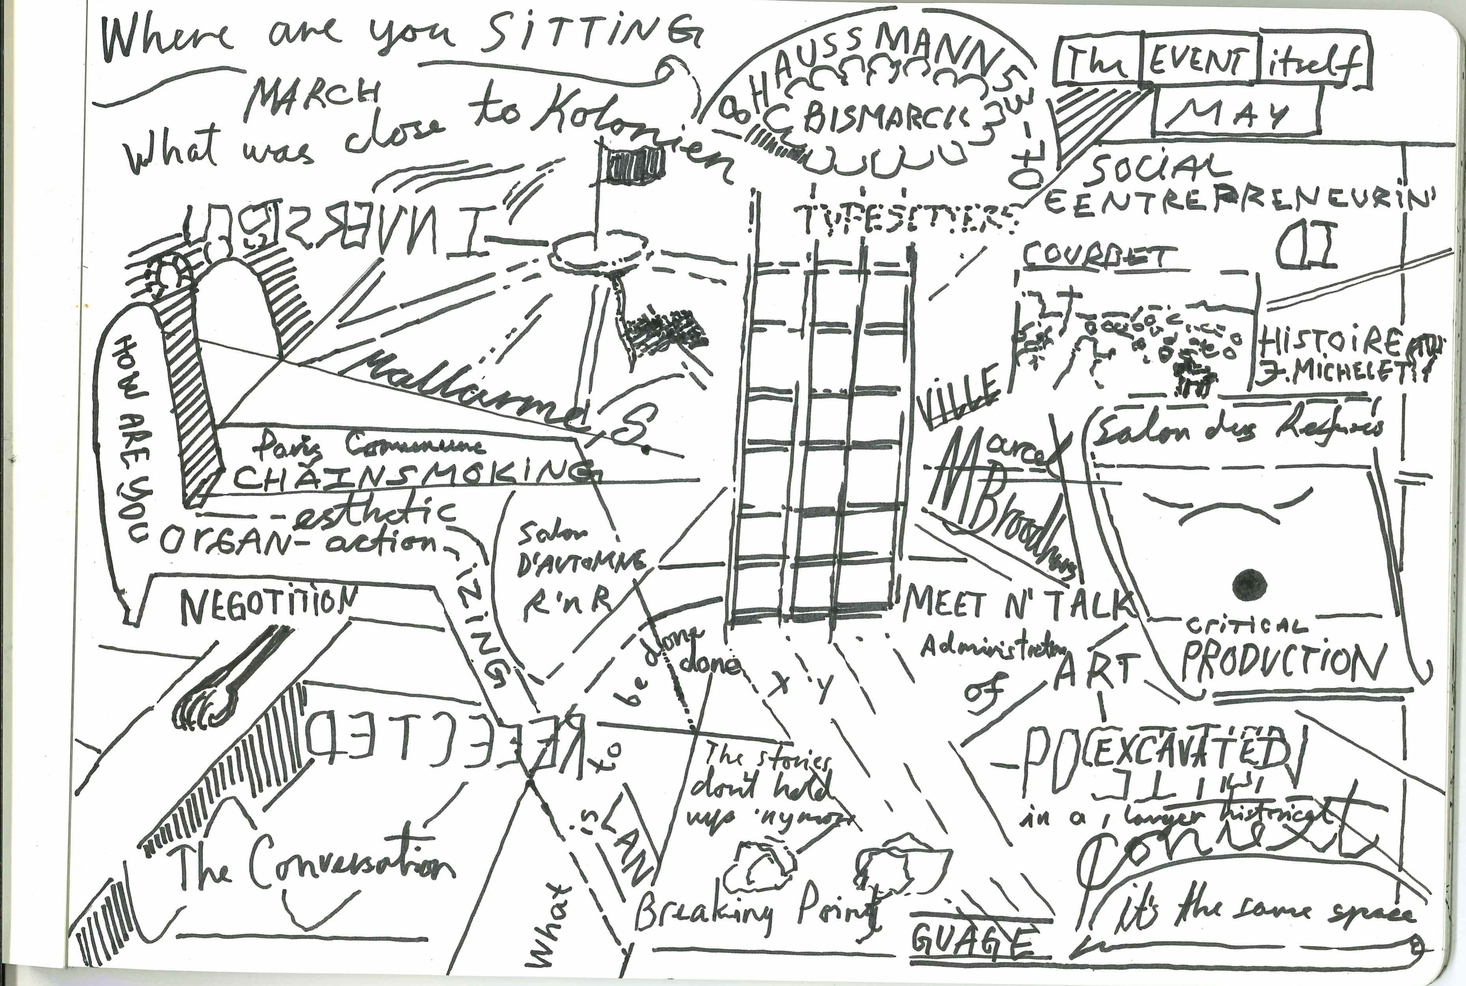 Where are you SiTTiNG
MARCH
What was close to Kolonien
& HAUSSMANN 53-70
BISMARCK
The EVENT itself
MAY
SOCIAL
EENTREPRENEURIN'
TYPESETTERS
COURBET
HISTOIRE
J. MICHELET
VILLE
Mallarmé, S.
HOW ARE YOU
Paris Commune
CHAINSMOKING
esthetic
ORGAN-action
IZING
NEGOTITION
Salon
D'AUTOMNE
R'n R
Marcel
Broodthaers
Salon des Refusés
MEET N' TALK
Administration
of ART
CRiTiCAL
PRODUCTION
be done
done
X Y
REJECTED
to
The stories
don't hold
up 'nymore
EXCAVATED
in a, larger historical
Context
it's the same space
The Conversation
What
is LAN
GUAGE
Breaking Point